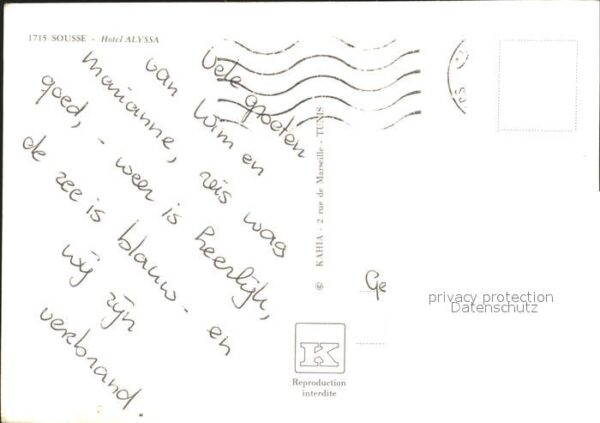 1715 SOUSSE - Hotel ALYSSA
Vele groeten
van Wim en
Marianne, reis was
goed, - weer is heerlijk,
de zee is blauw - en
wij zijn
verbrand.
© KAHIA - 2 rue de Marseille - TUNIS
Ge
privacy protection
Datenschutz
K
Reproduction
interdite